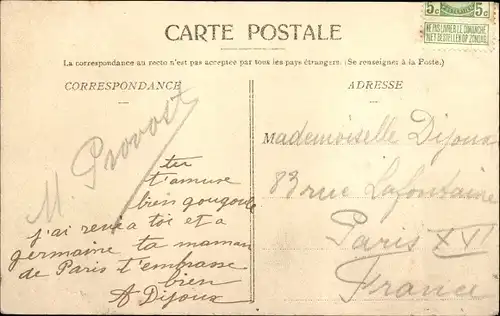 5c 5c
NE PAS LIVRER LE DIMANCHE
NIET BESTELLEN OP ZONDAG
CARTE POSTALE
La correspondance au recto n'est pas acceptée par tous les pays étrangers. (Se renseigner à la Poste.)
CORRESPONDANCE
ADRESSE
M. Provost
tu
t'amuse
bien
j'ai a toi et a
germaine ta maman
de Paris t'embrasse
bien
A Dijoux
Mademoiselle Dijoux
83 rue Lafontaine
Paris XVI
France